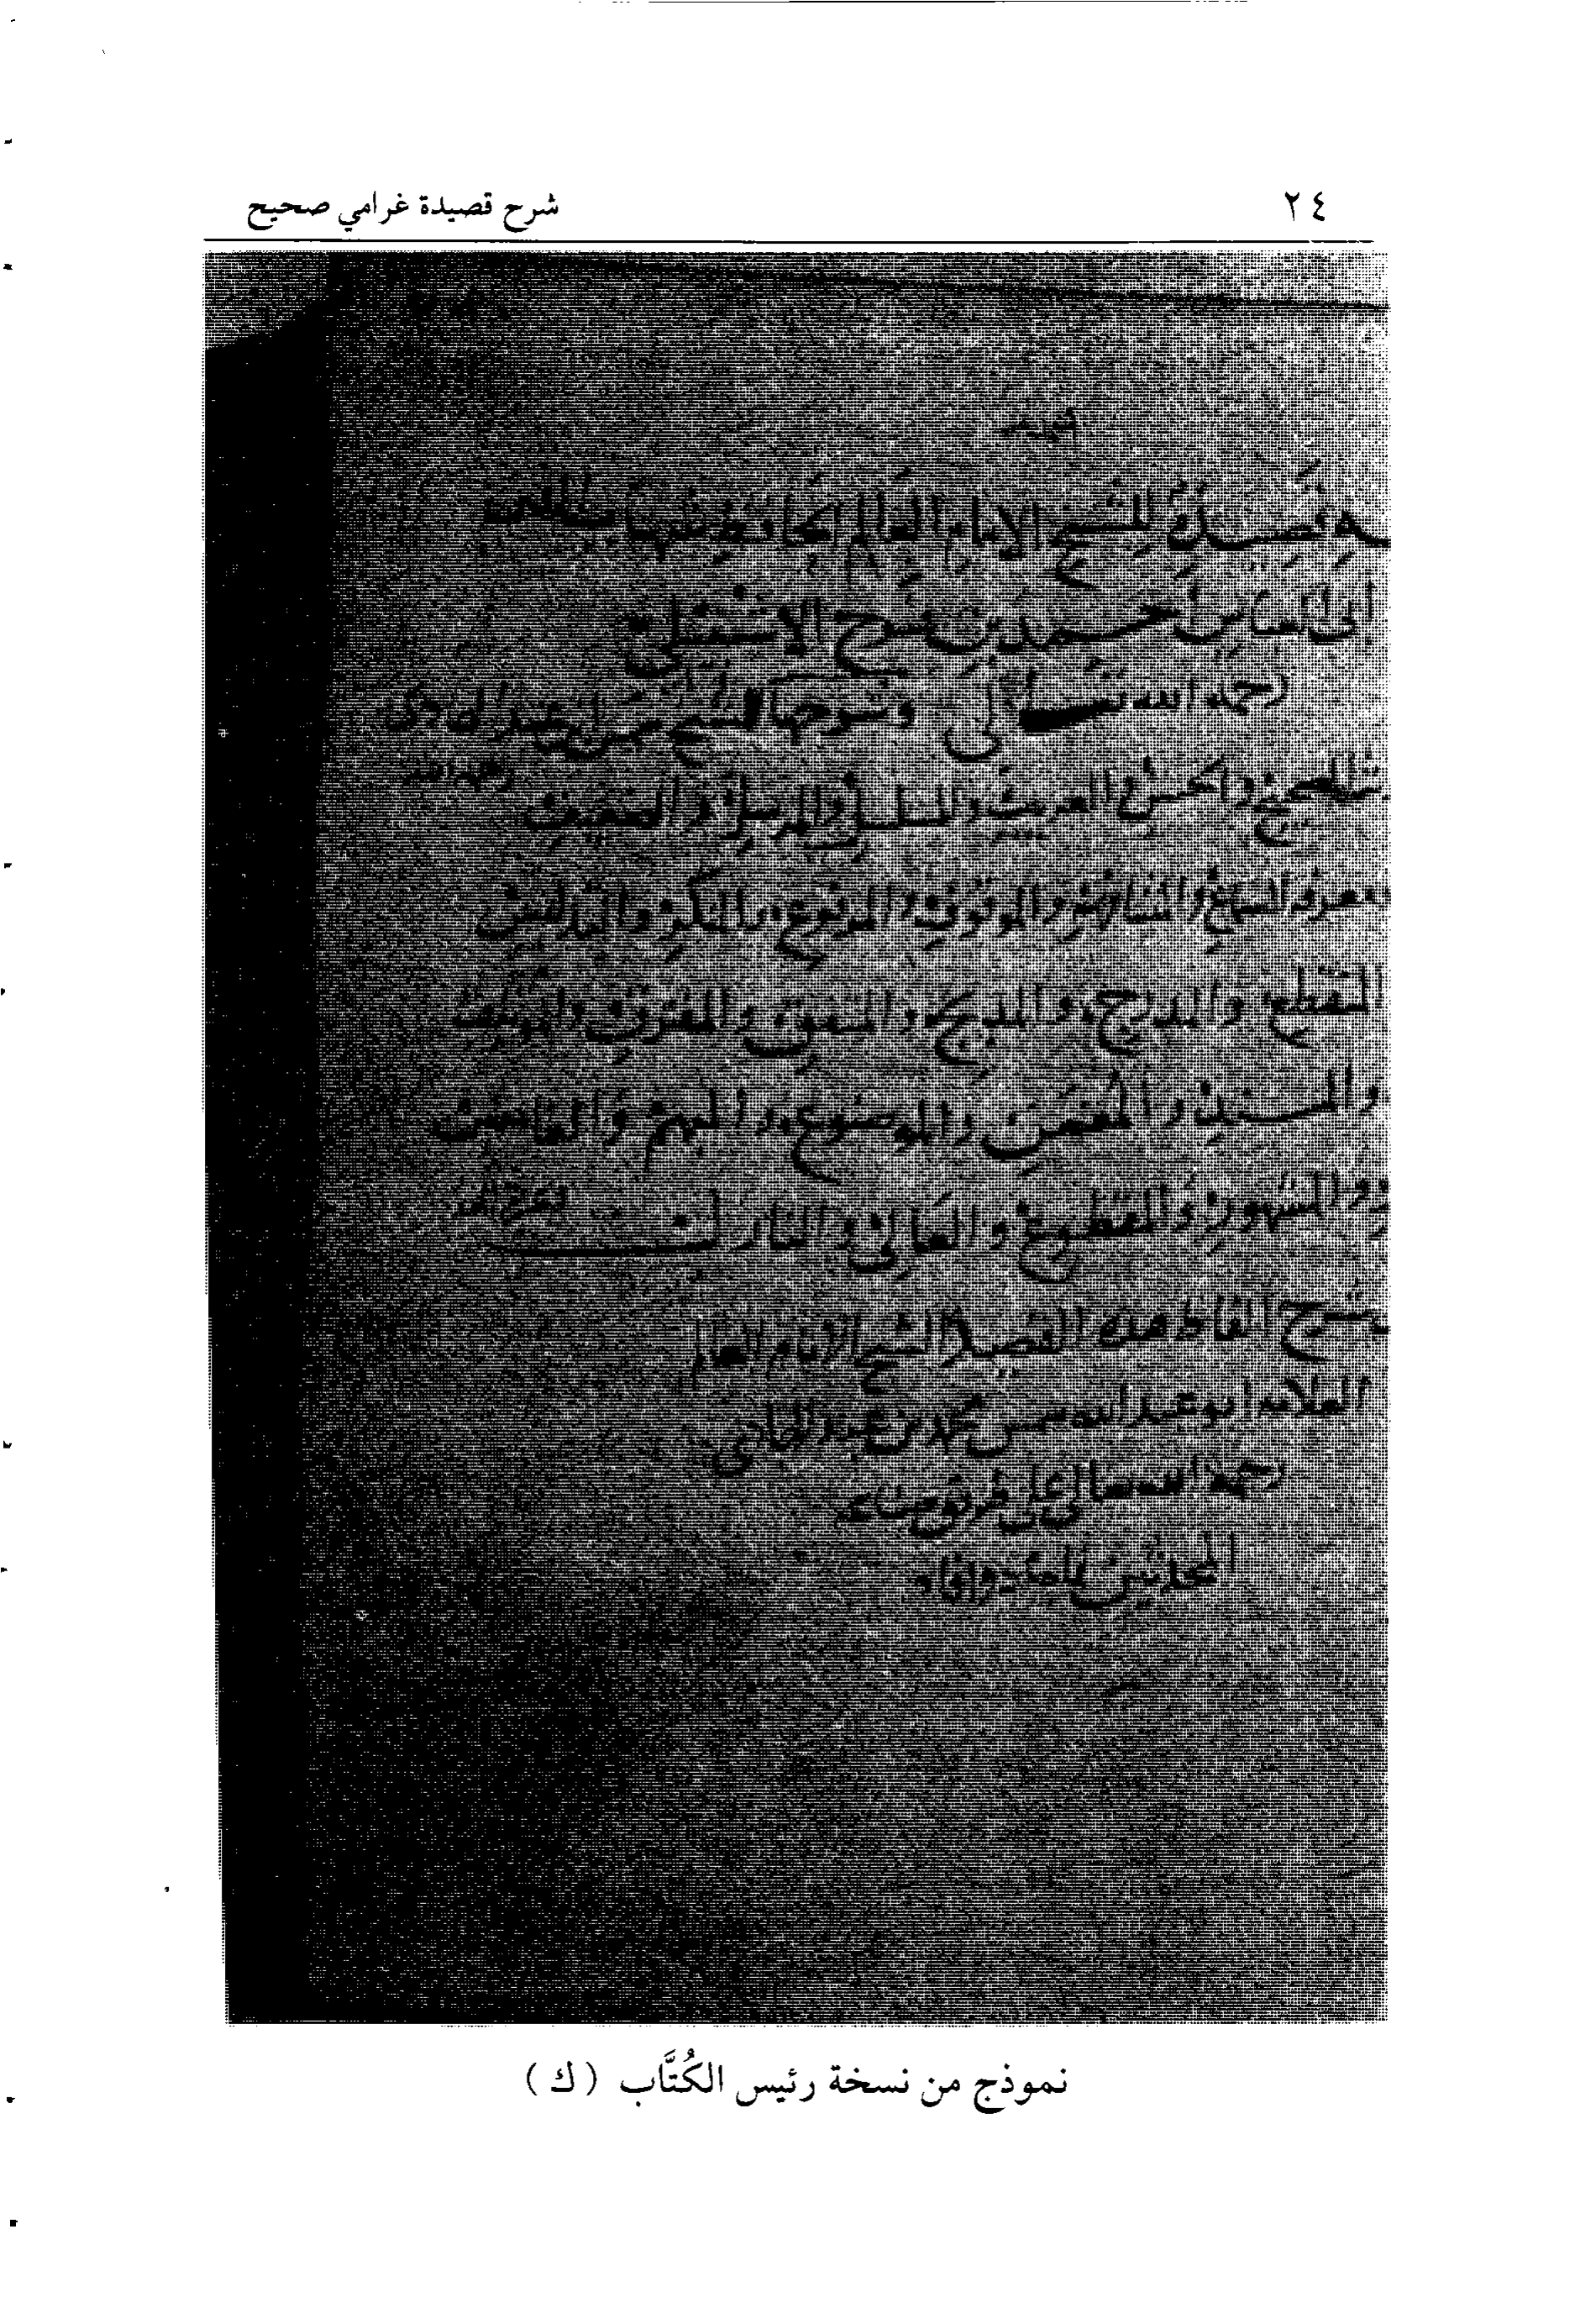 ٢٤
شرح قصيدة غرامي صحيح
قصيدة للشيخ الإمام العالم الحافظ شهاب
أبي العباس أحمد بن فرح الاشبيلي
رحمه الله تعالى وشرحها الشيخ
الصحيح والحسن والغريب والمسلسل والمرسل والضعيف
رحمه الله
السماع والمناولة والموقوف والمرفوع والمنكر والتدليس
المنقطع والمدرج والمدبج والمتفق والمفترق
والمسند والمعنعن والموضوع والمبهم
والمشهور والمقطوع والعالي والنازل
شرح الفاظ هذه القصيدة الشيخ الامام العالم
العلامة ابو عبد الله شمس محمد بن عبد الهادي
رحمه الله تعالى على طريق
المحدثين
نموذج من نسخة رئيس الكُتَّاب (ك)